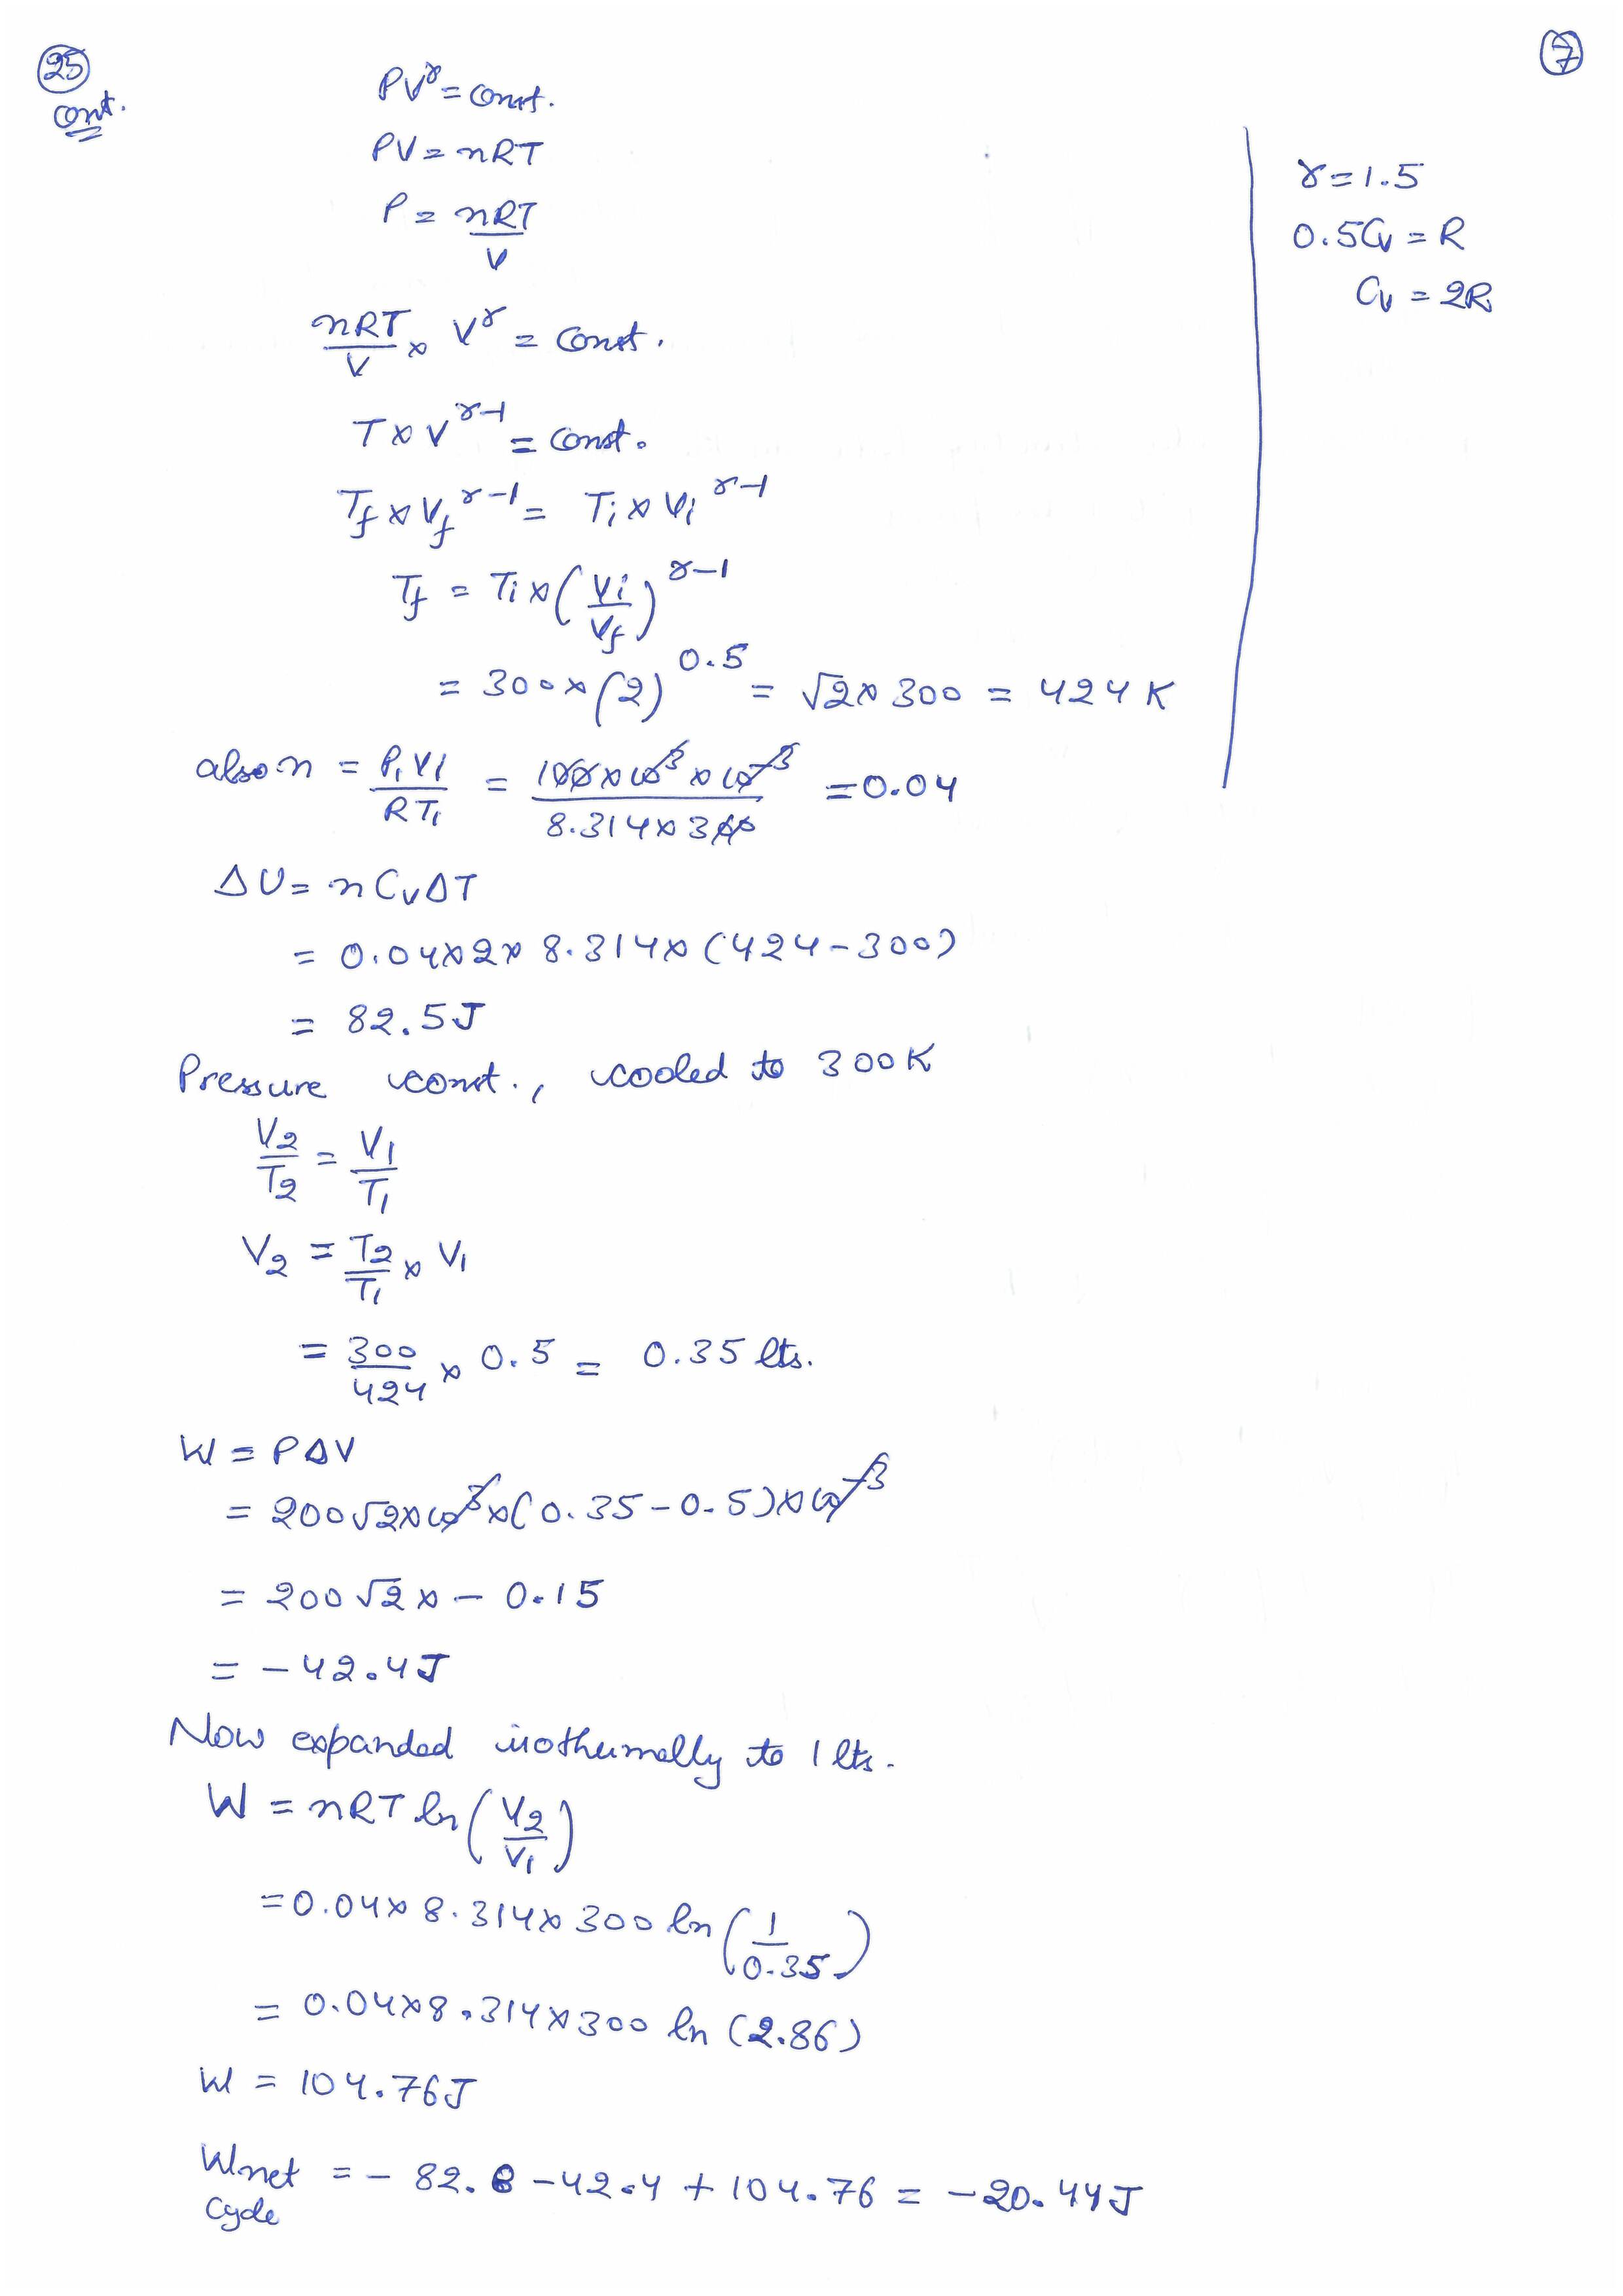 25 cont.
7
PV^γ = const.
PV = nRT
P = nRT/V
nRT/V × V^γ = const.
T × V^(γ-1) = const.
T_f × V_f^(γ-1) = T_i × V_i^(γ-1)
T_f = T_i × (V_i/V_f)^(γ-1)
= 300 × (2)^0.5 = √2 × 300 = 424 K
also n = P₁V₁/RT₁ = 100 × 10³ × 10⁻³/8.314 × 300 = 0.04
ΔU = n C_v ΔT
= 0.04 × 2 × 8.314 × (424 - 300)
= 82.5 J
Pressure const., cooled to 300 K
V₂/T₂ = V₁/T₁
V₂ = T₂/T₁ × V₁
= 300/424 × 0.5 = 0.35 lts.
W = PΔV
= 200√2 × 10³ × (0.35 - 0.5) × 10⁻³
= 200√2 × - 0.15
= - 42.4 J
Now expanded isothermally to 1 lts.
W = nRT ln(V₂/V₁)
= 0.04 × 8.314 × 300 ln(1/0.35)
= 0.04 × 8.314 × 300 ln (2.86)
W = 104.76 J
W net cycle = - 82.8 - 42.4 + 104.76 = - 20.44 J
γ = 1.5
0.5 C_v = R
C_v = 2R